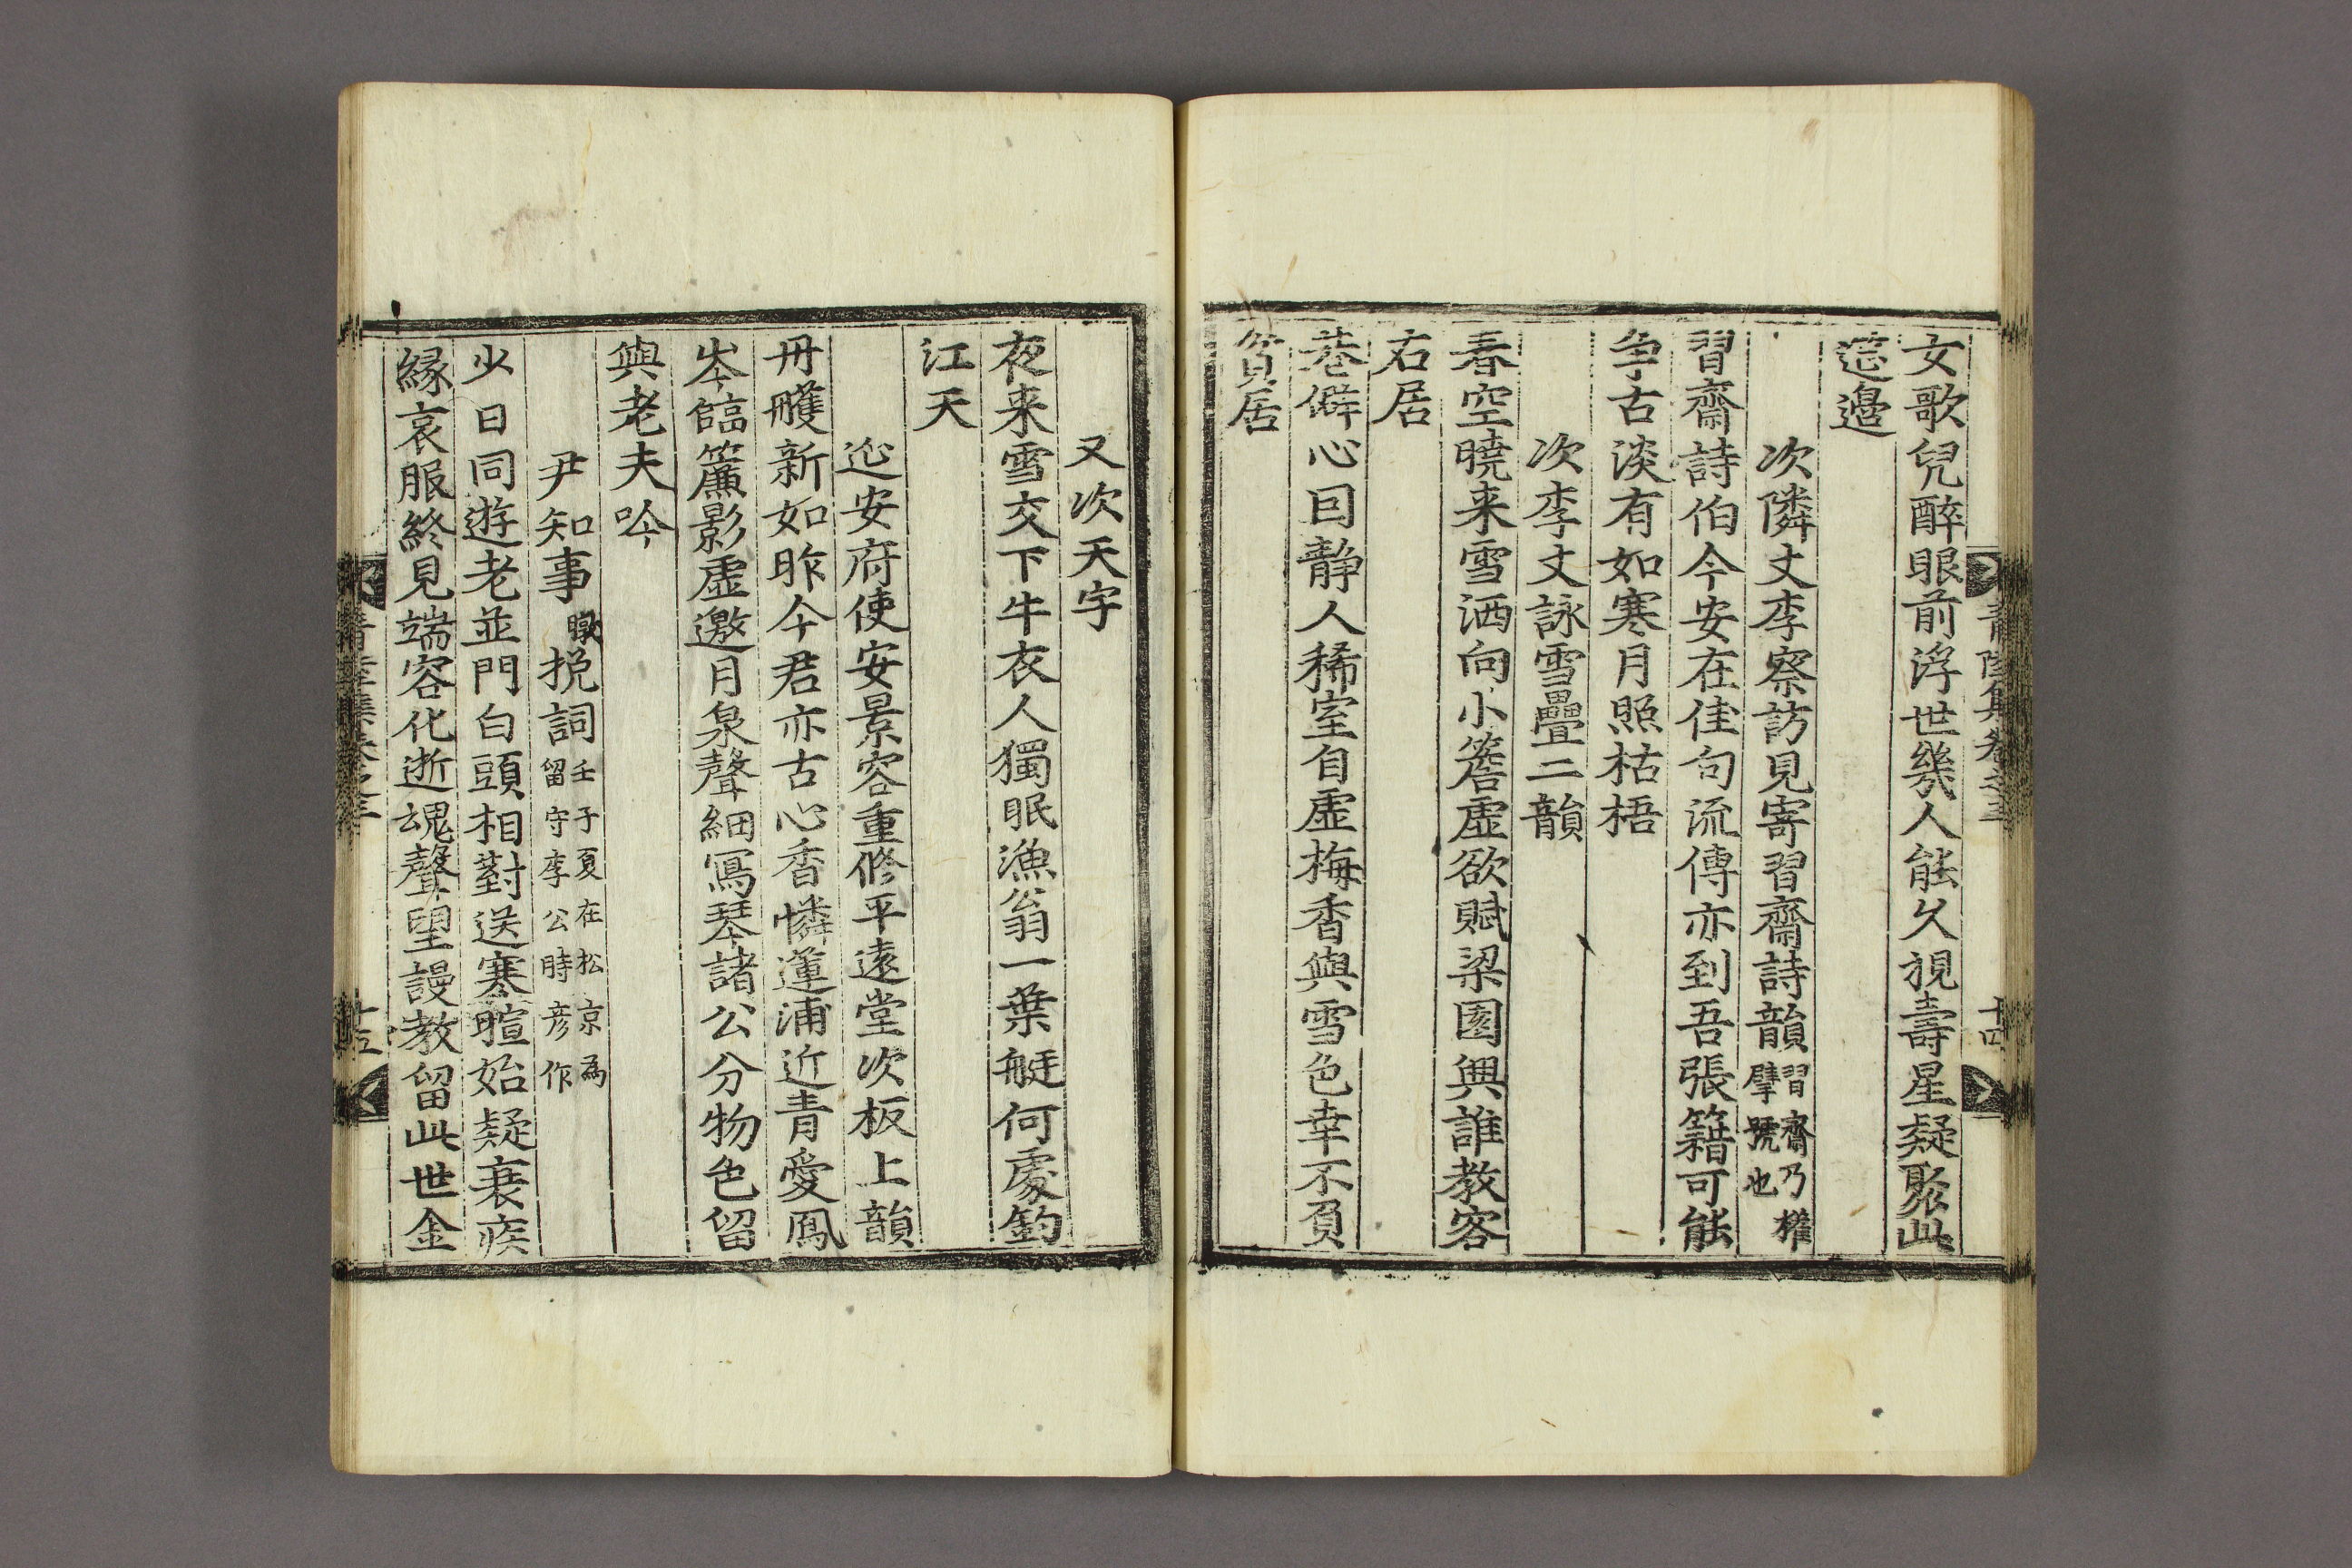 女歌兒醉眼前浮世幾人能久視壽星疑聚此
筵邊
次隣丈李察訪見寄習齋詩韻習齋乃權擘號也
習齋詩伯今安在佳句流傳亦到吾張籍可能
争古淡有如寒月照枯梧
次李丈詠雪疊二韻
春空曉来雪洒向小簷虛欲賦梁園興誰教客
右居
巷僻心囙静人稀室自虛梅香與雪色幸不負
貧居
又次天字
夜来雪交下牛衣人獨眠漁翁一葉艇何處釣
江天
迯安府使安景容重修平遠堂次板上韻
丹雘新如昨今君亦古心香憐蓮浦近青愛鳳
岑臨簾影虛邀月泉聲細寫琴諸公分物色留
與老夫吟
尹知事暾挽詞壬子夏在松京為留守李公時彦作
少日同遊老並門白頭相對送寒暄始疑衰疾
縁哀服終見端容化逝魂聲望謾教留此世金